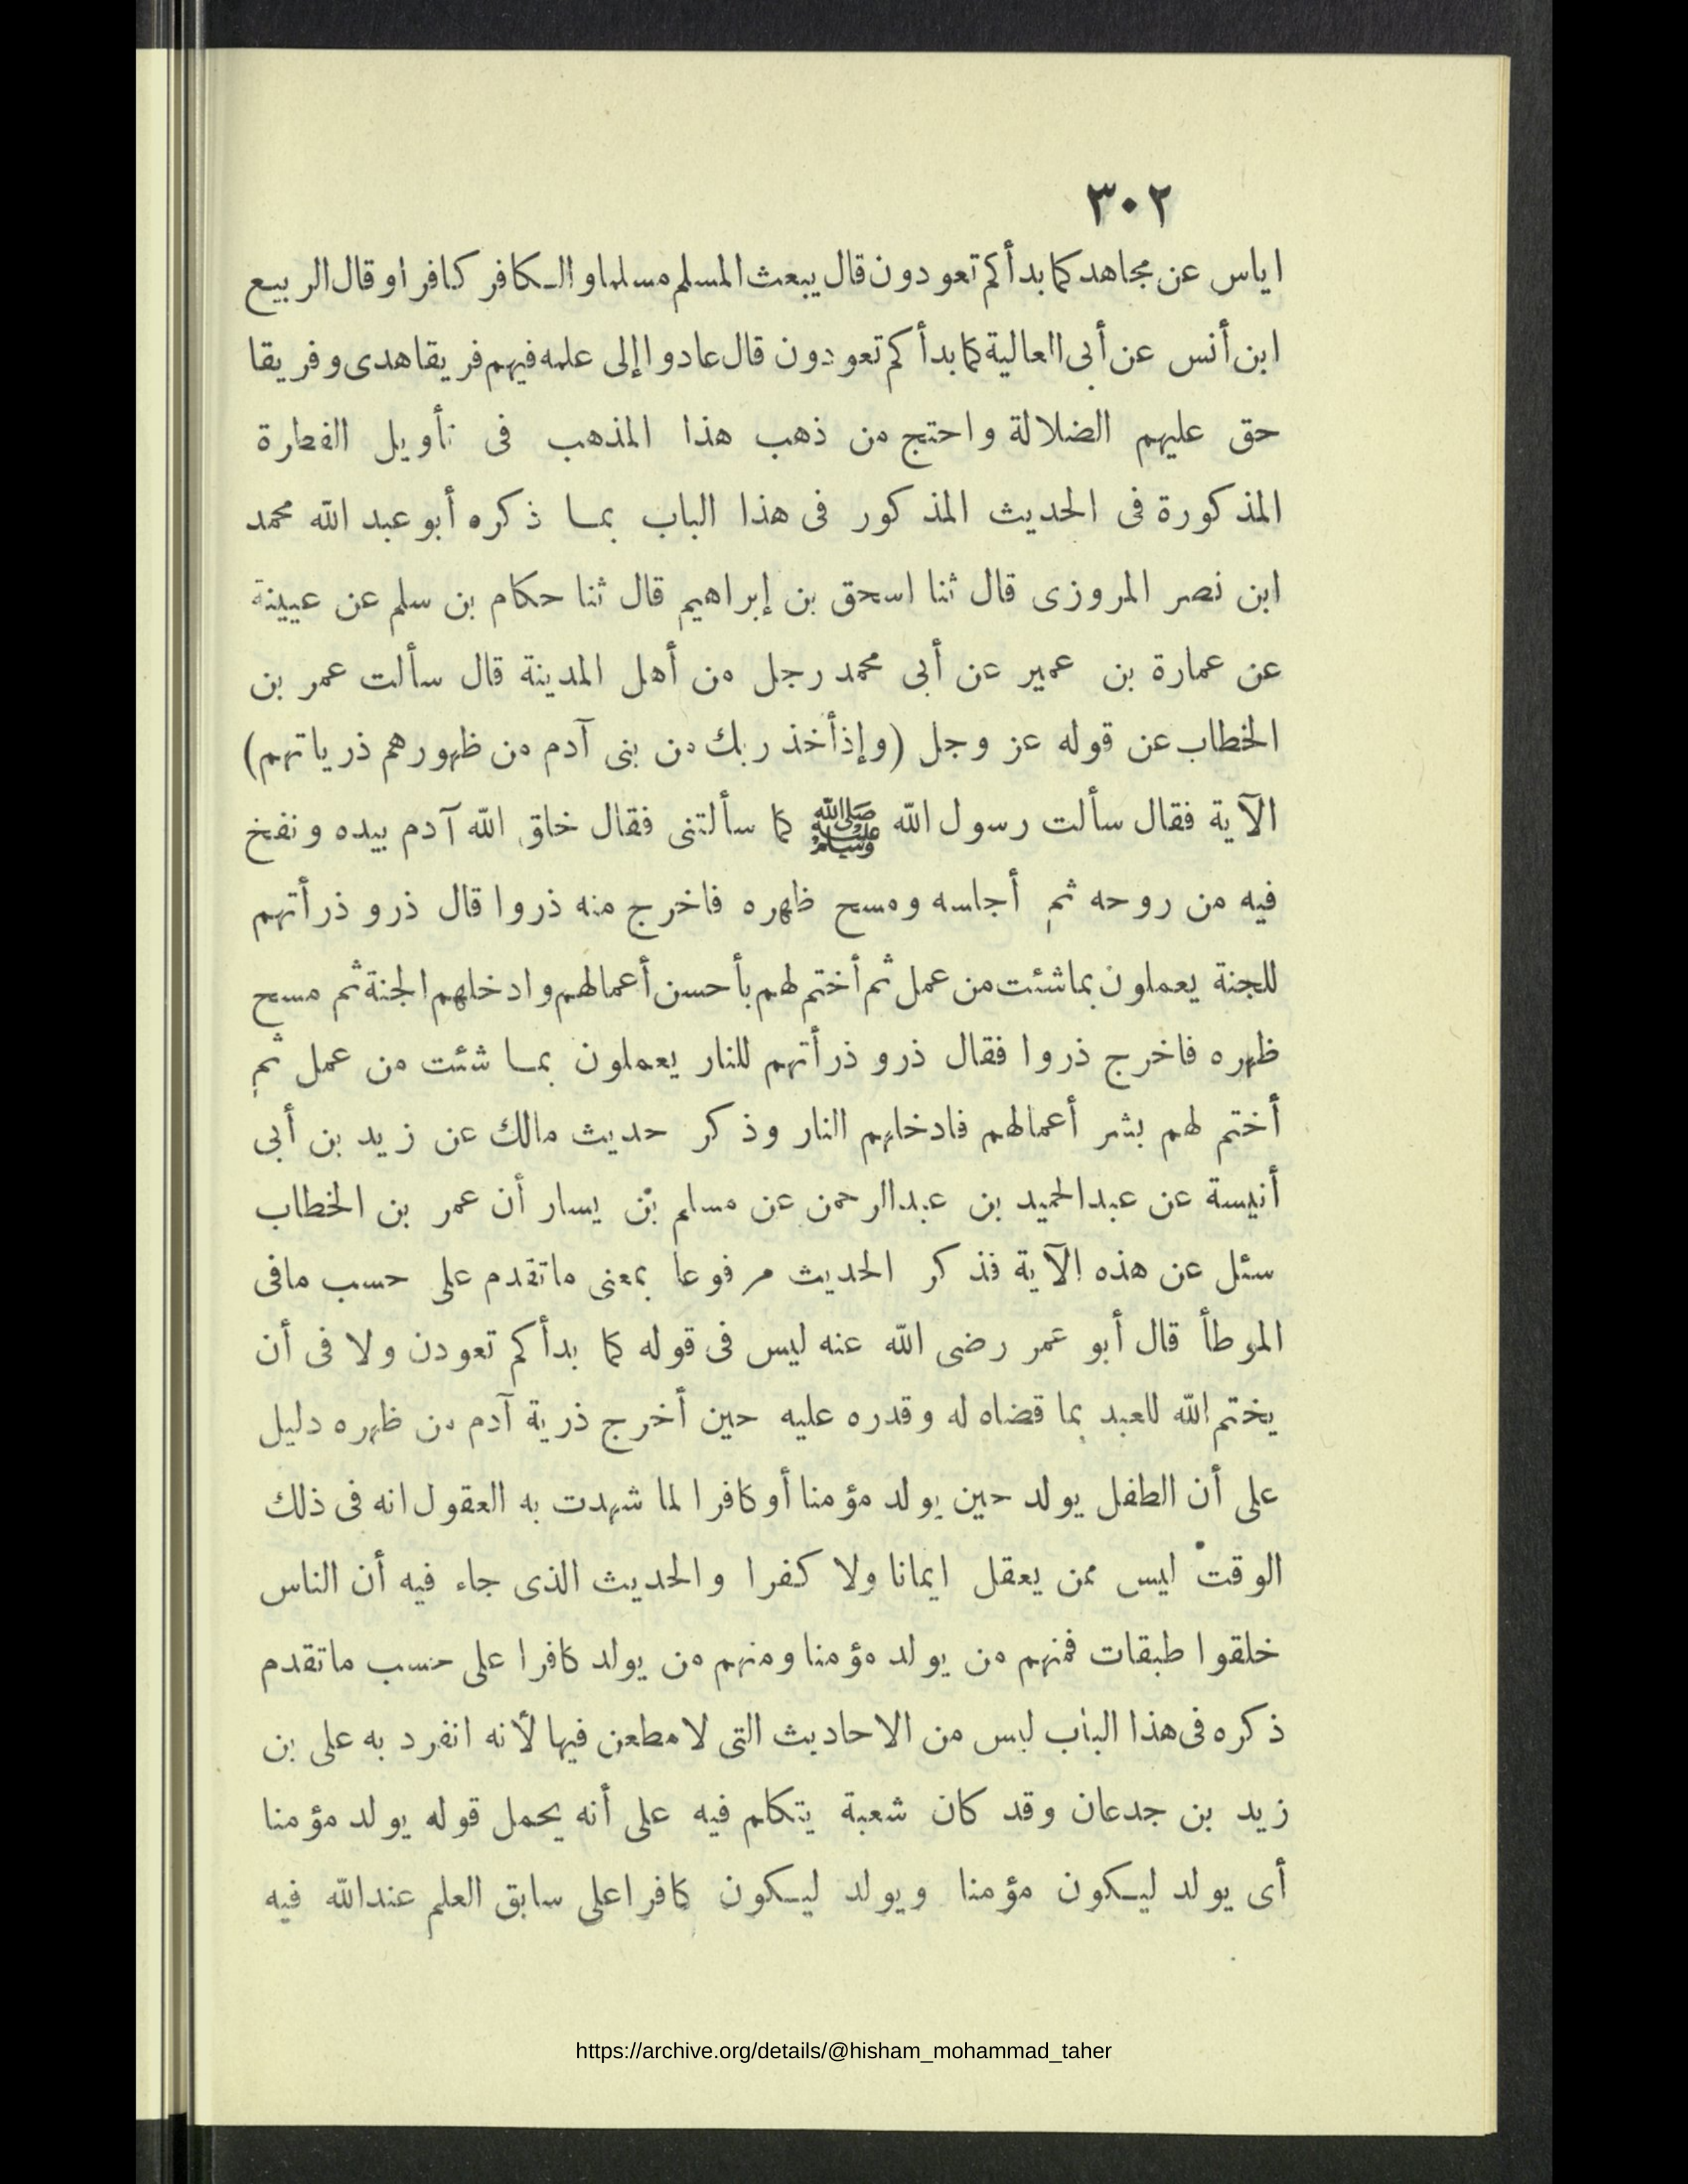 ٣٠٢
اياس عن مجاهد كما بدأكم تعودون قال يبعث المسلم مسلما والكافر كافرا وقال الربيع
ابن أنس عن أبى العالية كما بدأكم تعودون قال عادوا إلى علمه فيهم فريقا هدى وفريقا
حق عليهم الضلالة واحتج من ذهب هذا المذهب فى تأويل الفطرة
المذكورة فى الحديث المذكور فى هذا الباب بما ذكره أبو عبد الله محمد
ابن نصر المروزى قال ثنا اسحق بن إبراهيم قال ثنا حكام بن سلم عن عيينة
عن عمارة بن عمير عن أبى محمد رجل من أهل المدينة قال سألت عمر بن
الخطاب عن قوله عز وجل (وإذ أخذ ربك من بنى آدم من ظهورهم ذرياتهم)
الآية فقال سألت رسول الله ﷺ كما سألتنى فقال خلق الله آدم بيده ونفخ
فيه من روحه ثم أجلسه ومسح ظهره فاخرج منه ذروا قال ذرو ذرأتهم
للجنة يعملون بما شئت من عمل ثم أختم لهم بأحسن أعمالهم وادخلهم الجنة ثم مسح
ظهره فاخرج ذروا فقال ذرو ذرأتهم للنار يعملون بما شئت من عمل ثم
أختم لهم بشر أعمالهم فادخلهم النار وذكر حديث مالك عن زيد بن أبى
أنيسة عن عبدالحميد بن عبدالرحمن عن مسلم بن يسار أن عمر بن الخطاب
سئل عن هذه الآية فذكر الحديث مرفوعا بمعنى ماتقدم على حسب مافى
الموطأ قال أبو عمر رضى الله عنه ليس فى قوله كما بدأكم تعودن ولا فى أن
يختم الله للعبد بما قضاه له وقدره عليه حين أخرج ذرية آدم من ظهره دليل
على أن الطفل يولد حين يولد مؤمنا أو كافرا لما شهدت به العقول انه فى ذلك
الوقت ليس ممن يعقل ايمانا ولا كفرا والحديث الذى جاء فيه أن الناس
خلقوا طبقات فمنهم من يولد مؤمنا ومنهم من يولد كافرا على حسب ماتقدم
ذكره فى هذا الباب ليس من الاحاديث التى لا مطعن فيها لأنه انفرد به على بن
زيد بن جدعان وقد كان شعبة يتكلم فيه على أنه يحمل قوله يولد مؤمنا
أى يولد ليكون مؤمنا ويولد ليكون كافرا على سابق العلم عندالله فيه
https://archive.org/details/@hisham_mohammad_taher